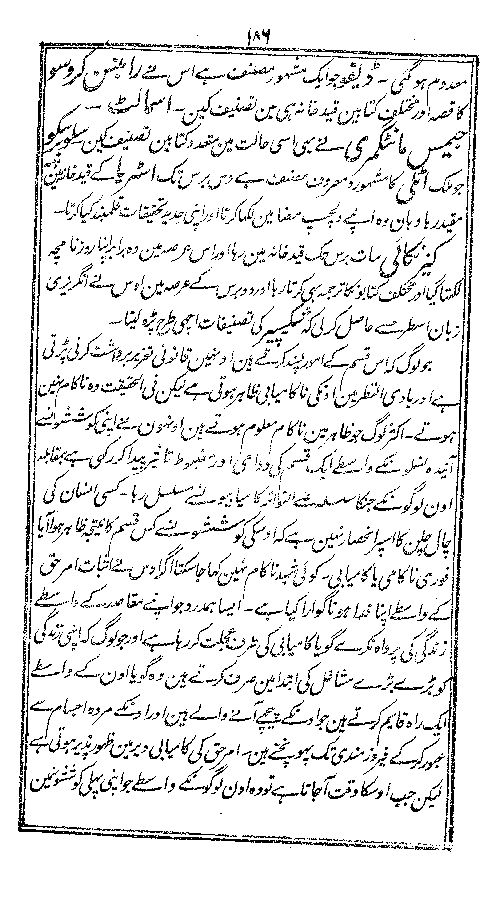 ۱۸۶
معدوم ہو گئی ۔ ڈیفو جو ایک مشہور مصنف ہے اس نے رابنسن کروسو
کا قصہ اور مختلف کتابین قید خانہ ہی مین تصنیف کین ۔ اسمالٹ ۔
جیمس مانٹگمری نے بہی اسی حالت مین متعدد کتابین تصنیف کین سلویو پلیکو
جو ملک اٹلی کا مشہور و معروف مصنف ہے دس برس تک اسٹریا کے قید خانہ مین
مقید رہا وہان وہ اپنے دلچسپ مضامین لکہا کرتا اور اپنی جدید تحقیقات قلمبند کیا کرتا ۔
سات برس تک قید خانہ مین رہا اور اس عرصہ مین وہ برابر اپنا روزنامچہ
لکہتا گیا اور مختلف کتابونکا ترجمہ بہی کرتا رہا اور دو برس کے عرصہ مین اوس نے انگریزی
زبان اسطرح سے حاصل کر لی کہ شکسپیر کی تصنیفات اچہی طرح پڑہ لیتا ۔
جو لوگ کہ اس قسم کے امور پسند کرتے ہین اونہین قانونی تعزیر برداشت کرنی پڑتی
ہے اور بادی النظر مین اونکی ناکامیابی ظاہر ہوتی ہے لیکن فی الحقیقت وہ ناکام نہین
ہوتے ۔ اکثر لوگ جو ظاہر مین ناکام معلوم ہوتے ہین اونہون نے اپنی کوششونسے
آئندہ نسلونکے واسطے ایک قسم کی دوامی اور مضبوط تاثیر پیدا کر رکہی ہے بمقابلہ
اون لوگونکے جنکا سلسلہ علی التواتر کامیابیونسے مسلسل رہا ۔ کسی انسان کی
چال چلن کا اسپر انحصار نہین ہے کہ اوسکی کوششونسے کس قسم کا نتیجہ ظاہر ہوا آیا
فوری ناکامی یا کامیابی ۔ کوئی شہید ناکام نہین کہا جا سکتا اگر اوس نے اثبات امر حق
کے واسطے اپنا فدا ہونا گوارا کیا ہے ۔ ایسا ہمدرد جو اپنے مقاصد کے واسطے
زندگی کی پرواہ نکرے گویا کامیابی کی طرف عجلت کر رہا ہے اور جو لوگ کہ اپنی زندگی
کو بڑے بڑے مشاغل کی ابتدا مین صرف کرتے ہین وہ گویا اون کے واسطے
ایک راہ قایم کرتے ہین جو اونکے پیچہے آنے والے ہین اور اونکے مردہ اجسام سے
عبور کر کے فیروزمندی تک پہونچتے ہین ۔ امر حق کی کامیابی دیر مین ظہور پذیر ہوتی ہے
لیکن جب اوسکا وقت آ جاتا ہے تو وہ اون لوگونکے واسطے جو اپنی پہلی کوششونمین